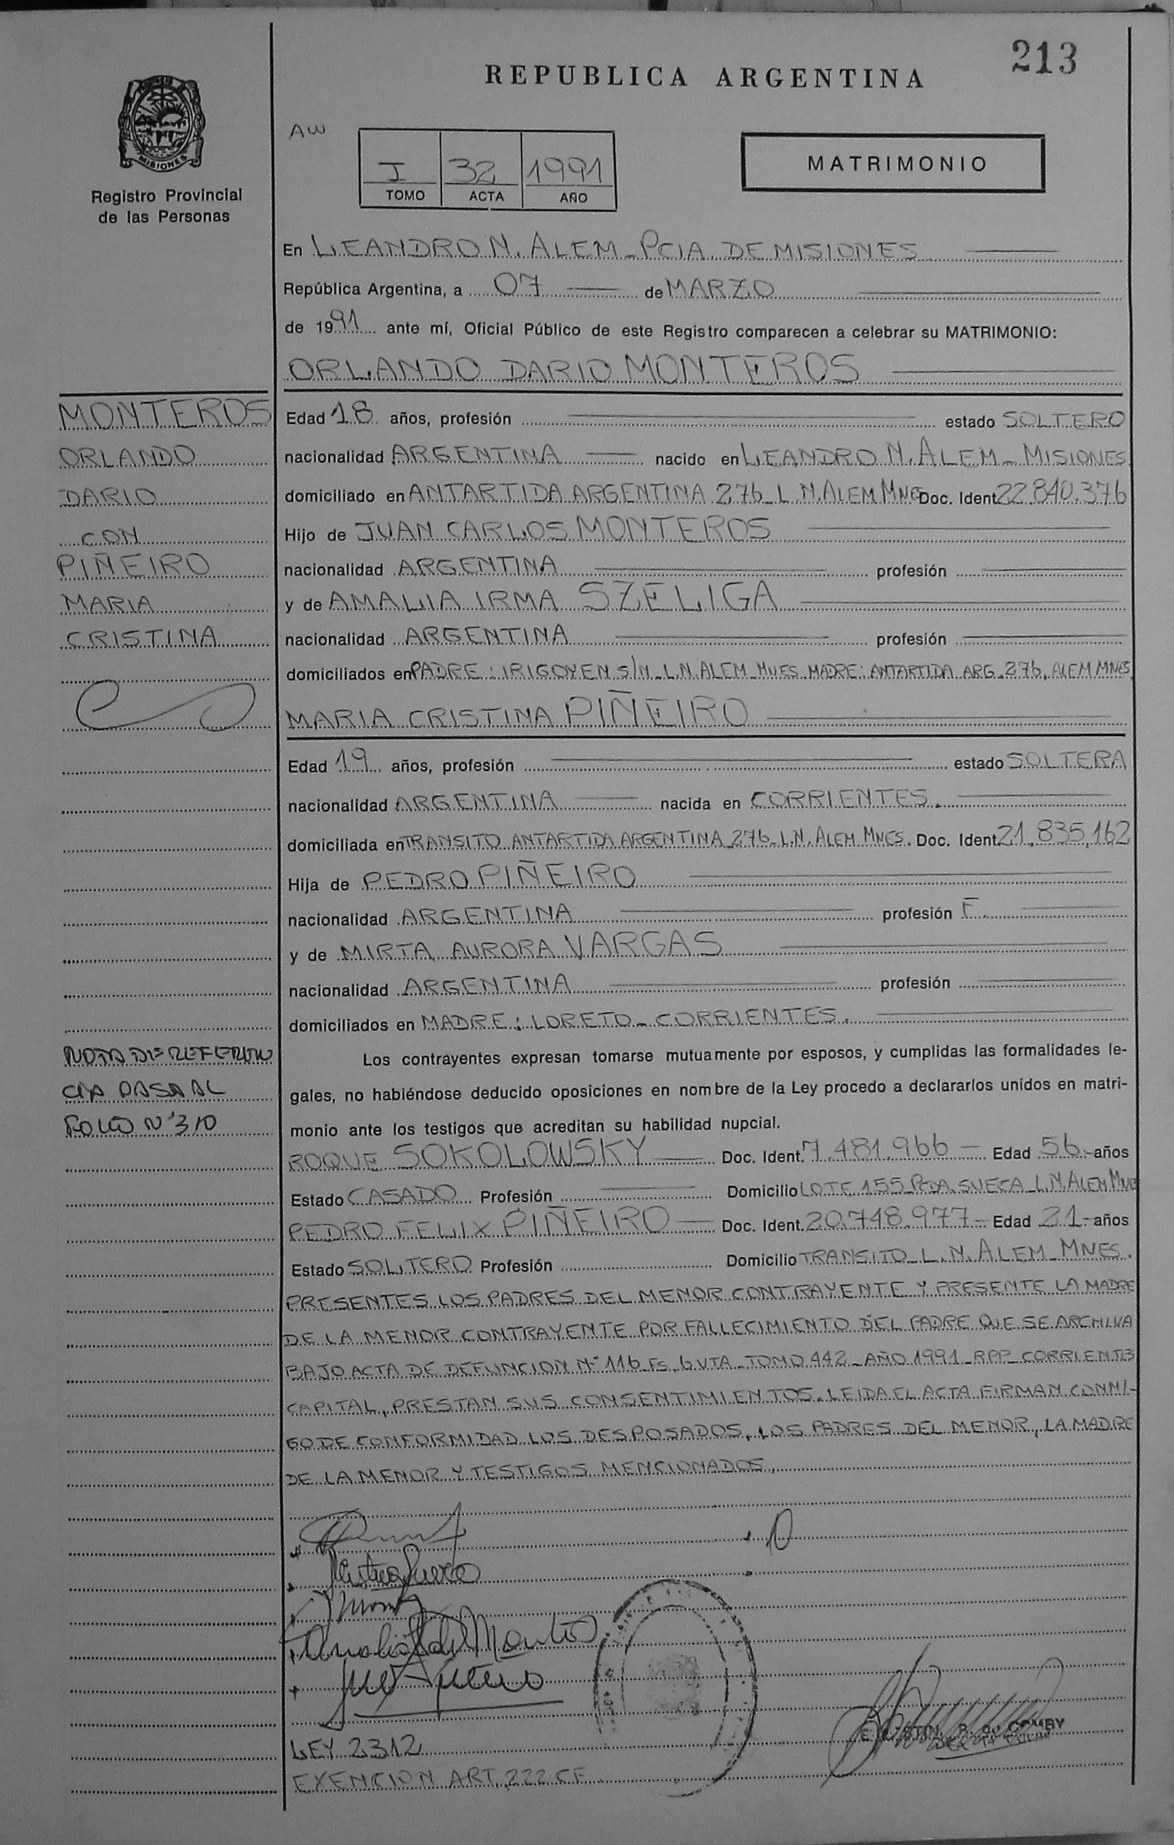 213
REPUBLICA ARGENTINA
MISIONES
Registro Provincial
de las Personas
AW
I 32 1991
TOMO ACTA AÑO
MATRIMONIO
En LEANDRO N. ALEM - PCIA. DE MISIONES
República Argentina, a 07 de MARZO
de 1991 ante mí, Oficial Público de este Registro comparecen a celebrar su MATRIMONIO:
ORLANDO DARIO MONTEROS
MONTEROS
ORLANDO
DARIO
CON
PIÑEIRO
MARIA
CRISTINA
Edad 18 años, profesión estado SOLTERO
nacionalidad ARGENTINA nacido en LEANDRO N. ALEM - MISIONES
domiciliado en ANTARTIDA ARGENTINA 276 - L.N. ALEM MNES Doc. Ident. 22.840.376
Hijo de JUAN CARLOS MONTEROS
nacionalidad ARGENTINA profesión
y de AMALIA IRMA SZELIGA
nacionalidad ARGENTINA profesión
domiciliados en PADRE: IRIGOYEN S/N - L.N. ALEM - MNES. MADRE: ANTARTIDA ARG. 276, ALEM MNES
MARIA CRISTINA PIÑEIRO
Edad 19 años, profesión estado SOLTERA
nacionalidad ARGENTINA nacida en CORRIENTES.
domiciliada en TRANSITO ANTARTIDA ARGENTINA 276 - L.N. ALEM MNES. Doc. Ident. 21.835.162
Hija de PEDRO PIÑEIRO
nacionalidad ARGENTINA profesión F.
y de MIRTA AURORA VARGAS
nacionalidad ARGENTINA profesión
domiciliados en MADRE: LORETO - CORRIENTES.
NOTA DE REFEREN
CIA PASA AL
FOLIO Nº 310
Los contrayentes expresan tomarse mutuamente por esposos, y cumplidas las formalidades le-
gales, no habiéndose deducido oposiciones en nombre de la Ley procedo a declararlos unidos en matri-
monio ante los testigos que acreditan su habilidad nupcial.
ROQUE SOKOLOWSKY Doc. Ident. 7.481.966 - Edad 56 - años
Estado CASADO Profesión Domicilio LOTE 155 - PCDA. SUECA - L.N. ALEM MNE
PEDRO FELIX PIÑEIRO Doc. Ident. 20.748.977 - Edad 21 - años
Estado SOLTERO Profesión Domicilio TRANSITO - L.N. ALEM - MNES.
PRESENTES LOS PADRES DEL MENOR CONTRAYENTE Y PRESENTE LA MADRE
DE LA MENOR CONTRAYENTE POR FALLECIMIENTO DEL PADRE QUE SE ARCHIVA
BAJO ACTA DE DEFUNCION Nº 116 - FS. 6 VTA - TOMO 442 - AÑO 1991 - RPP - CORRIENTES
CAPITAL, PRESTAN SUS CONSENTIMIENTOS. LEIDA EL ACTA FIRMAN CONMI-
GO DE CONFORMIDAD LOS DESPOSADOS, LOS PADRES DEL MENOR, LA MADRE
DE LA MENOR Y TESTIGOS MENCIONADOS.
LEY 2312
EXENCION ART. 222 CF